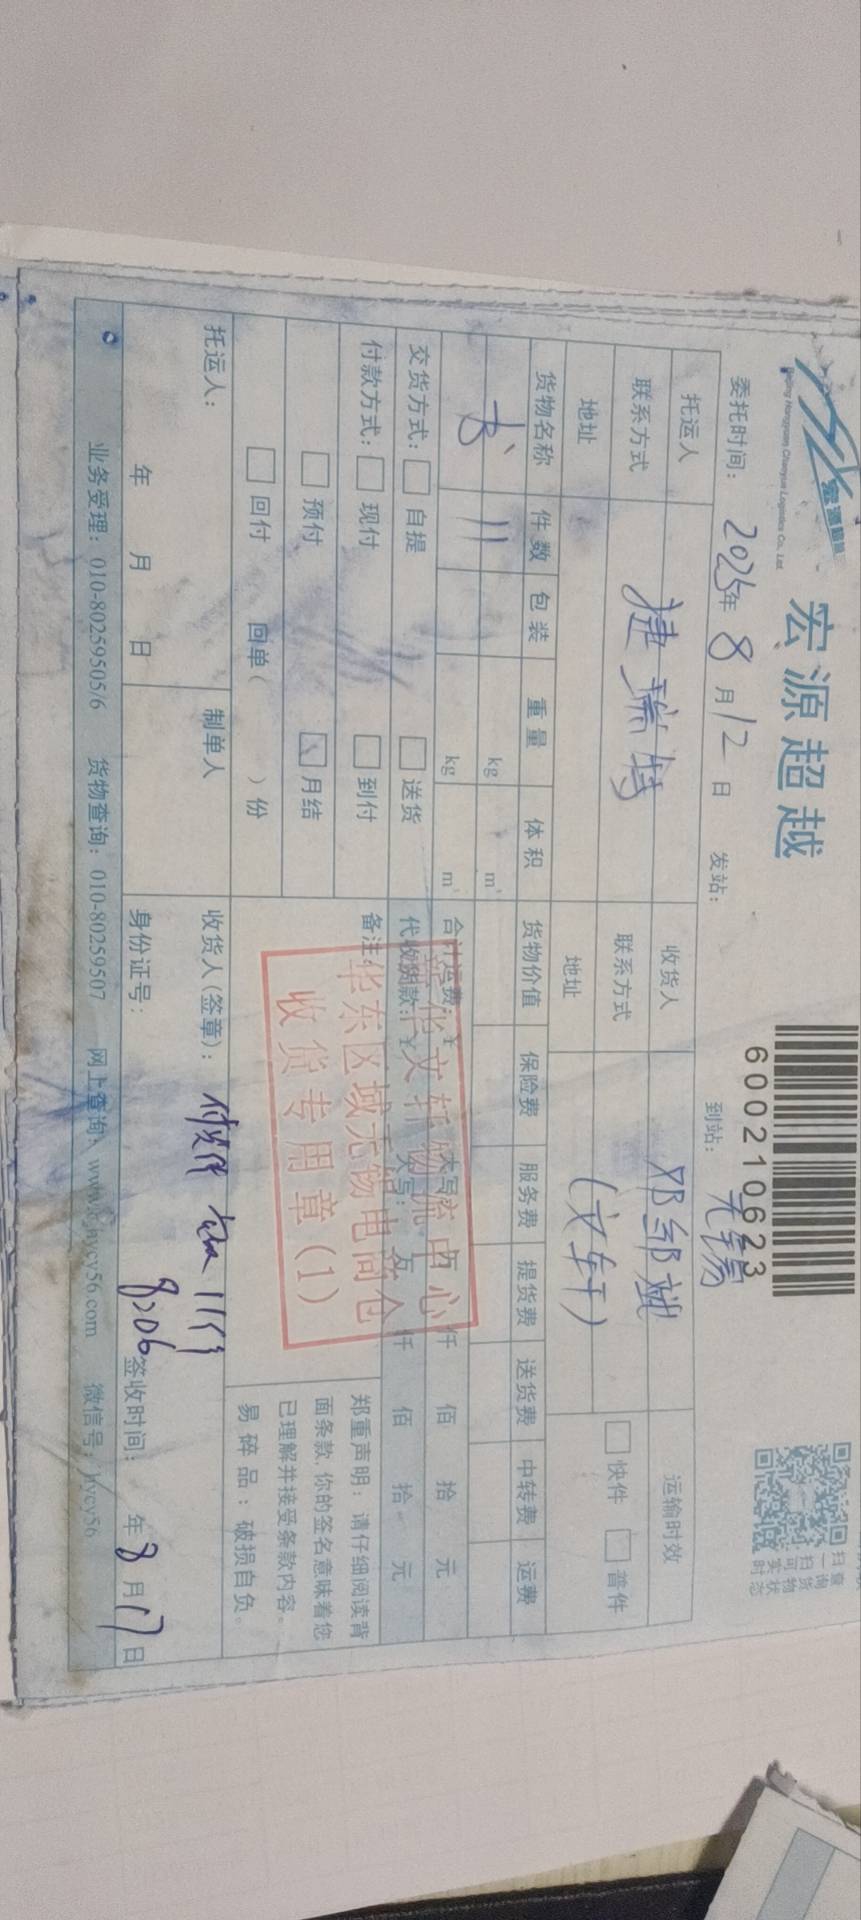 宏源超越
Beijing Hongyuan Chaoyue Logistics Co., Ltd
宏源超越
600210623
扫一扫 查询货物实时状态
委托时间: 2025年 8月12日 发站: 到站: 无锡
托运人 捷瑞特 收货人 邓邹斌 运输时效
联系方式 联系方式 (文轩) 快件 普件
地址 地址
货物名称 件数 包装 重量 体积 货物价值 保险费 服务费 提货费 送货费 中转费 运费
书 11 kg m³
kg m³
合计运费: ¥ 大写: 仟 佰 拾 元
交货方式: 自提 送货 代收货款: ¥ 大写: 万 仟 佰 拾 元
付款方式: 现付 到付 备注:
预付 月结
回付 回单( )份
新华文轩物流中心
华东区域无锡电商仓
收货专用章(1)
郑重声明: 请仔细阅读背
面条款, 你的签名意味着您
已理解并接受条款内容。
易碎品: 破损自负。
托运人: 制单人 收货人(签章): 11件
年 月 日 身份证号: 8206 签收时间: 年8月17日
业务受理: 010-80259505/6 货物查询: 010-80259507 网上查询: www.bjhycy56.com 微信号: hycy56